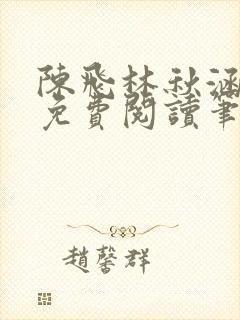 陳飛林秋涵
免費閱讀筆
趙馨群